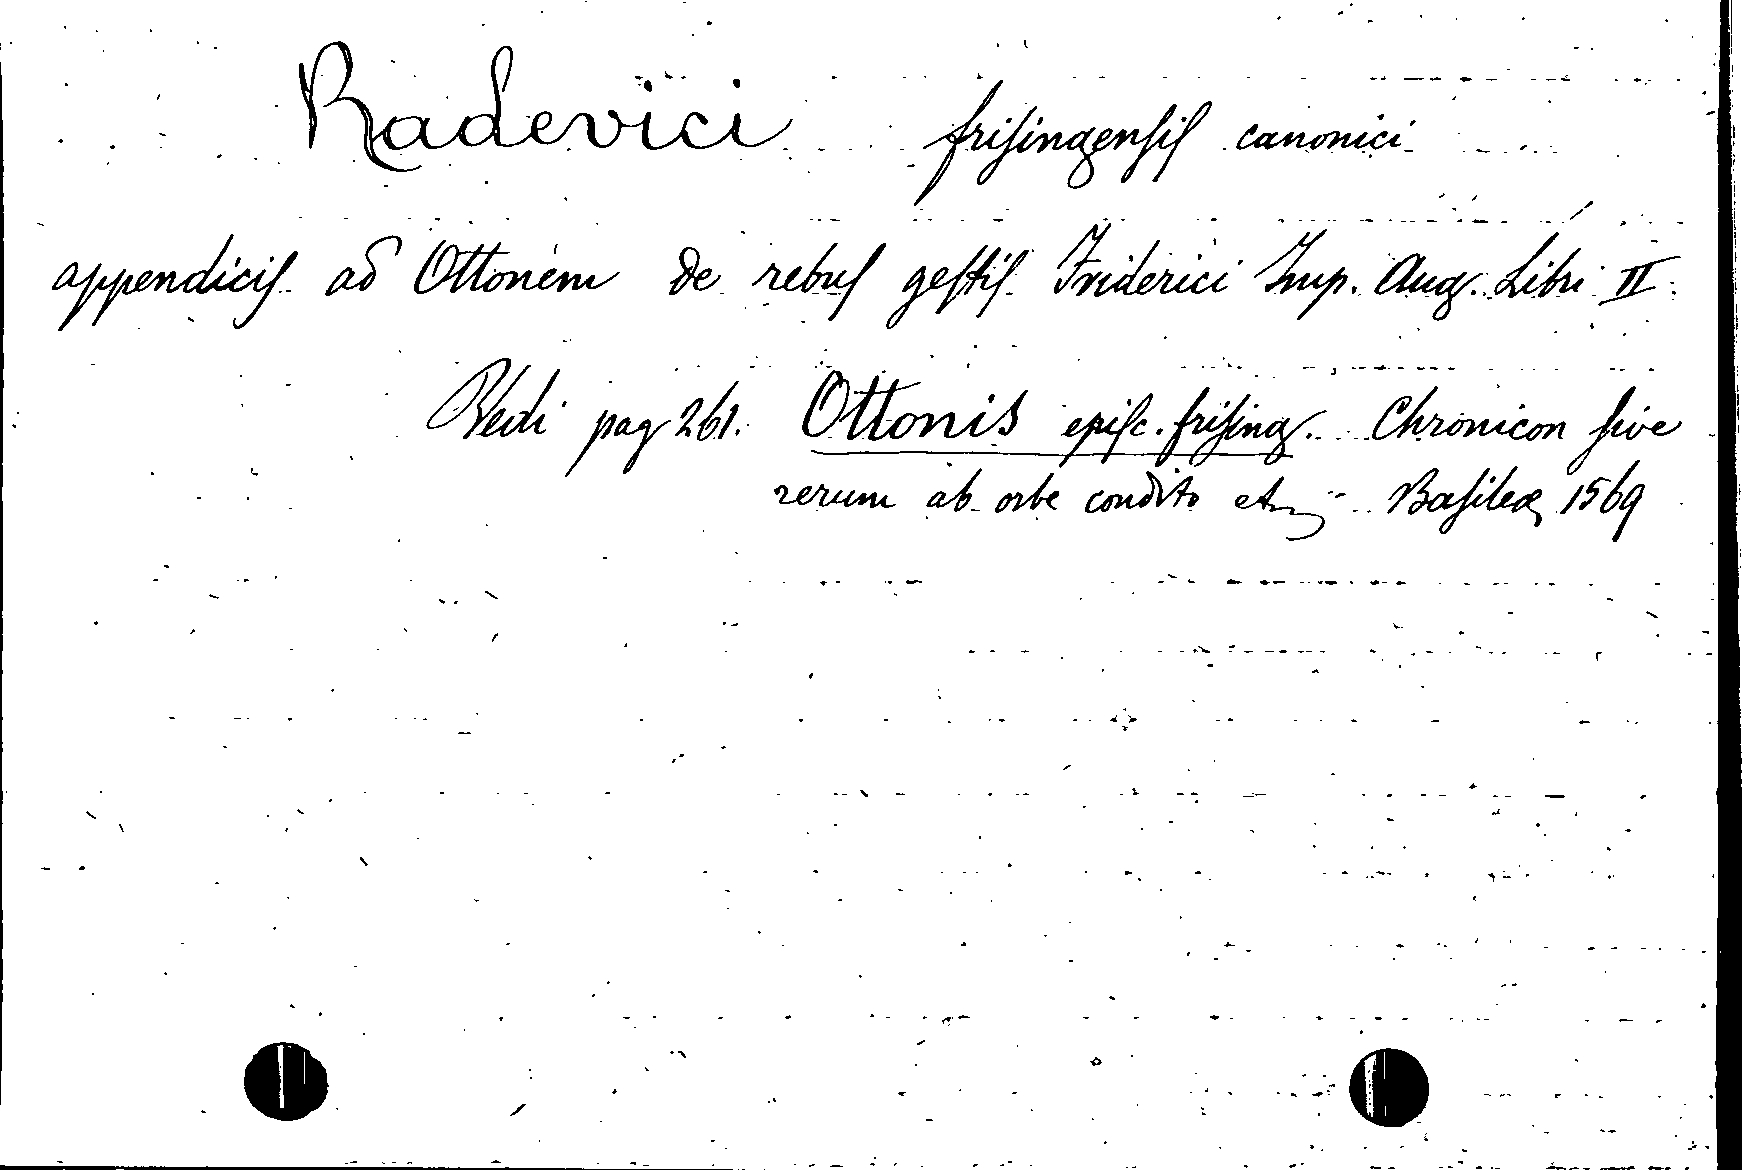 Radevici friſingenſiſ canonici
appendiciſ ad Ottonem de rebuſ geſtiſ Friderici Imp. Aug. Libri II.
Vedi pag 261. Ottonis epiſc. friſing. Chronicon ſive
rerum ab orbe condito etc Baſileæ 1569